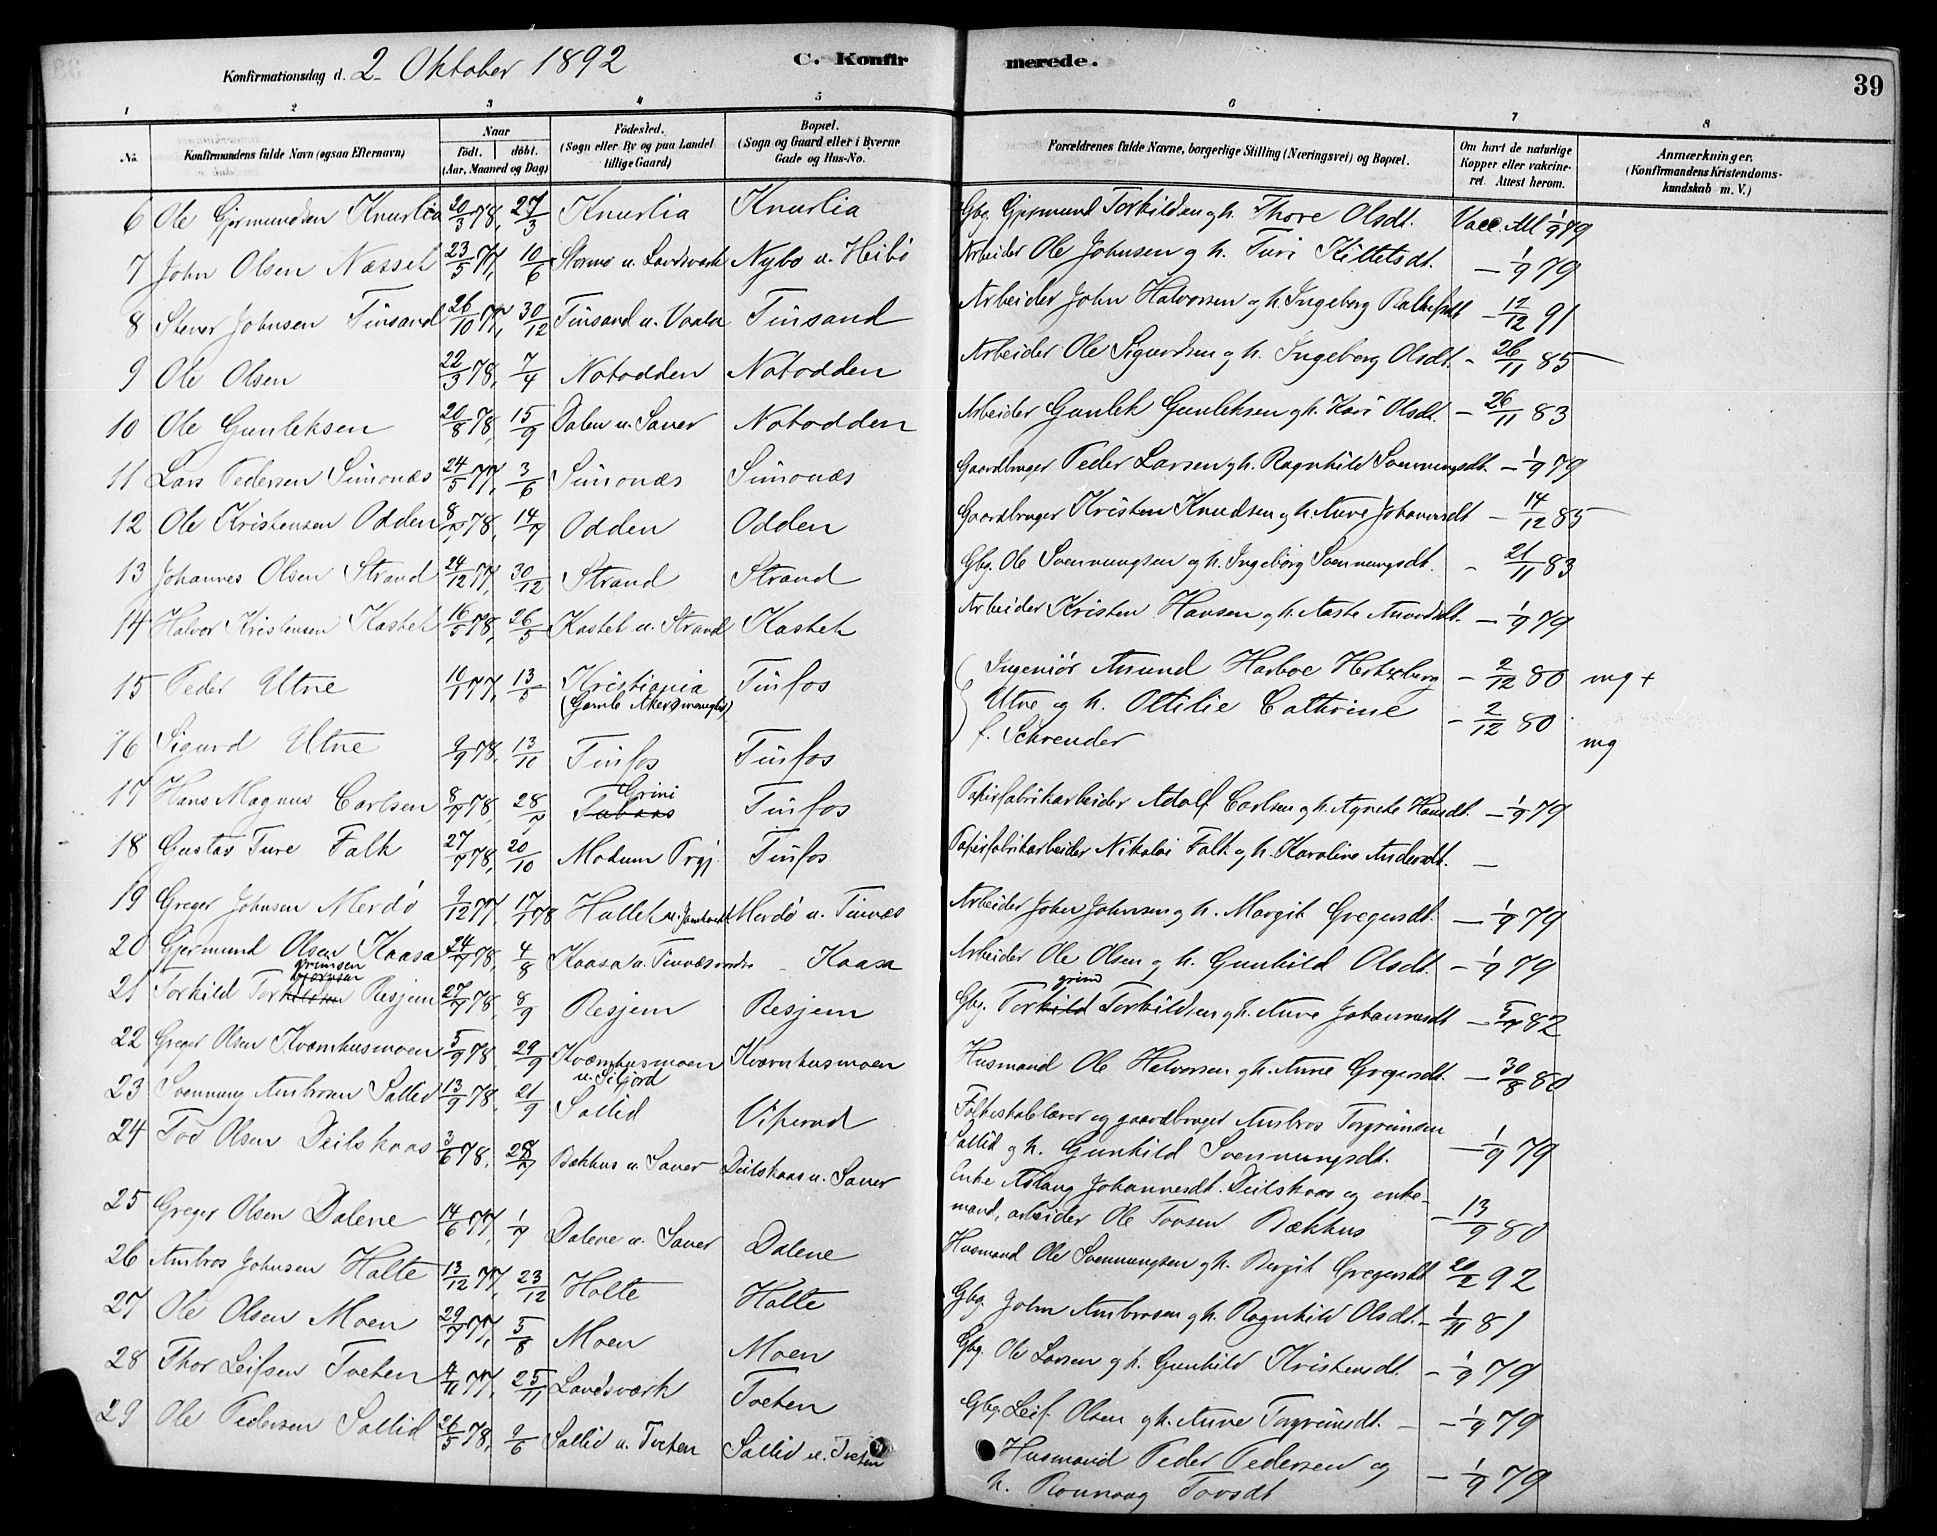 39
Konfirmationsdag d. 2 Oktober 1892 C. Konfir merede.
1 2 3 4 5 6 7 8
No. Konfirmandens fulde Navn (ogsaa Efternavn) Naar födt. döbt. (Aar, Maaned og Dag) Födested. (Sogn eller By og paa Landet tillige Gaard) Bopæl. (Sogn og Gaard eller i Byerne Gade og Hus-No. Forældrenes fulde Navne, borgerlige Stilling (Næringsvei) og Bopæl. Om havt de naturlige Kopper eller vakcineret. Attest herom. Anmærkninger. (Konfirmandens Kristendomskundskab m. V.)
6 Ole Gjermundsen Knurlia 20/3 78, 27/3 Knurlia Knurlia Gbg. Gjermund Torkildsen og h. Thore Olsdt. Vacc. Att 1/9 79
7 John Olsen Næsset 23/5 77, 10/6 Stormo u. Landsværk Nybo u. Heibö Arbeider Ole Johnsen og h. Turi Kittelsdt. – 1/9 79
8 Stener Johnsen Tinsand 26/10 77, 30/12 Tinsand u. Vaala Tinsand Arbeider John Halvorsen og h. Ingeborg – 12/12 91
9 Ole Olsen 22/3 78, 7/4 Notodden Notodden Arbeider Ole Sigurdsen og h. Ingeborg Olsdt. – 26/11 85
10 Ole Gunleksen 20/8 78, 15/9 Dalen u. Sauer Notodden Arbeider Gunlek Gunleksen og h. Kari Olsdt. – 26/11 83
11 Lars Pedersen Simonæs 24/5 77, 3/6 Simonæs Simonæs Gaardbruger Peder Larsen og h. Ragnhild Svennungsdt. – 1/9 79
12 Ole Kristensen Odden 8/7 78, 14/7 Odden Odden Gaardbruger Kristen Knudsen og h. Anne Johannesdt – 14/12 85
13 Johannes Olsen Strand 24/12 77, 30/12 Strand Strand Gbg. Ole Svennungsen og h. Ingeborg Svennungsdt. – 21/11 83
14 Halvor Kristensen Kastet 16/5 78, 26/5 Kastet u. Strand Kastet Arbeider Kristen Hansen og h. Aaste – 1/9 79
15 Peder Utne 10/1 77, 13/5 Kristiania (Gamle Akersmenighed) Tinfos Ingeniör Amund Harboe Hertzberg – 2/12 80 mg +
Utne og h. Ottilie Cathrine – 2/12 80
16 Sigurd Utne 9/9 78, 13/10 Tinfos Tinfos f. Schreuder mg
17 Hans Magnus Carlsen 8/7 78, 28/7 Grini Tinfos Papirfabrikarbeider Adolf Carlsen og h. Agnete Hansdt. – 1/9 79
18 Gustav Ture Falk 27/7 78, 20/10 Modum Prgj. Tinfos Papirfabrikarbeider Nikolai Falk og h. Karoline Andersdt. –
19 Greger Johnsen Merdö 9/12 77, 17/1 78 Hallet u. Merdö u. Tinnæs Arbeider John Johnsen og h. Margit Gregersdt. – 1/9 79
20 Gjermund Olsen Kaasa 24/7 78, 4/8 Kaasa u. Tinnæs – Kaasa Arbeider Ole Olsen og h. Gunhild Olsdt. – 1/9 79
21 Torkild Torkildsen grimsen Resjem 27/7 78, 8/9 Resjem Resjem Gbg. Torkild grim Torkildsen og h. Anne Johannesdt – 5/7 82
22 Greger Olsen Kværnhusmoen 5/9 78, 29/9 Kværnhusmoen u. Seljord Kværnhusmoen Husmand Ole Halvorsen og h. Anne Gregersdt. – 30/8 80
23 Svennung Ambrosen Sattid 13/9 78, 21/9 Sattid Viperud Folkeskolelærer og gaardbruger Ambros Torgrimsen
Sattid og h. Gunhild Svennungsdt. – 1/9 79
24 Tov Olsen Deilskaas 3/6 78, 28/7 Bækhus u. Sauer Deilskaas u. Sauer Enke Aslaug Johannesdt. Deilskaas og enkemand,
arbeider Ole Tovsen Bækhus – 13/9 80
25 Greger Olsen Dalene 14/6 77, 1/7 Dalene u. Sauer Dalene Husmand Ole Svennungsen og h. Bergit Gregersdt 20/2 92
26 Ambros Johnsen Holte 13/12 77, 23/12 Holte Holte Gbg. John Ambrosen og h. Ragnhild Olsdt. – 1/11 81
27 Ole Olsen Moen 29/7 77, 5/8 Moen Moen Gbg. Ole Larsen og h. Gunhild Kristensdt. – 1/9 79
28 Thor Leifsen Tveten 4/11 77, 25/11 Landsværk Tveten Gbg. Leif Olsen og h. Anne Torgrimsdt. – 1/9 79
29 Ole Pedersen Sattid 26/5 78, 9/6 Sattid u. Tveten Sattid u. Tveten Husmand Peder Pedersen og
h. Rønnaug Tovsdt – 1/9 79